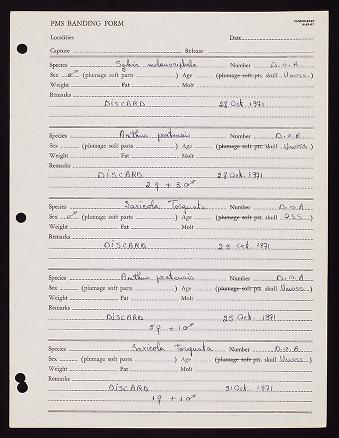 PMS BANDING FORM
Localities Date
Capture Release
Species Sylvia melanocephala Number D.O.A.
Sex ♂ (plumage soft parts ) Age (plumage soft pts. skull Unoss.)
Weight Fat Molt
Remarks
DISCARD 28 Oct. 1971
Species Anthus pratensis Number D.O.A.
Sex (plumage soft parts ) Age (plumage soft pts. skull Unoss.)
Weight Fat Molt
Remarks
DISCARD 28 Oct. 1971
2♀ + 3♂
Species Saxicola Torquata Number D.O.A.
Sex ♂ (plumage soft parts ) Age (plumage soft pts. skull OSS.)
Weight Fat Molt
Remarks
DISCARD 29 Oct. 1971
Species Anthus pratensis Number D.O.A.
Sex (plumage soft parts ) Age (plumage soft pts. skull Unoss.)
Weight Fat Molt
Remarks
DISCARD Oct. 1971
♀ + 1♂
Species Saxicola torquata Number D.O.A.
Sex (plumage soft parts ) Age (plumage soft pts. skull Unoss.)
Weight Fat Molt
Remarks
DISCARD 31 Oct. 1971
1♀ + 1♂